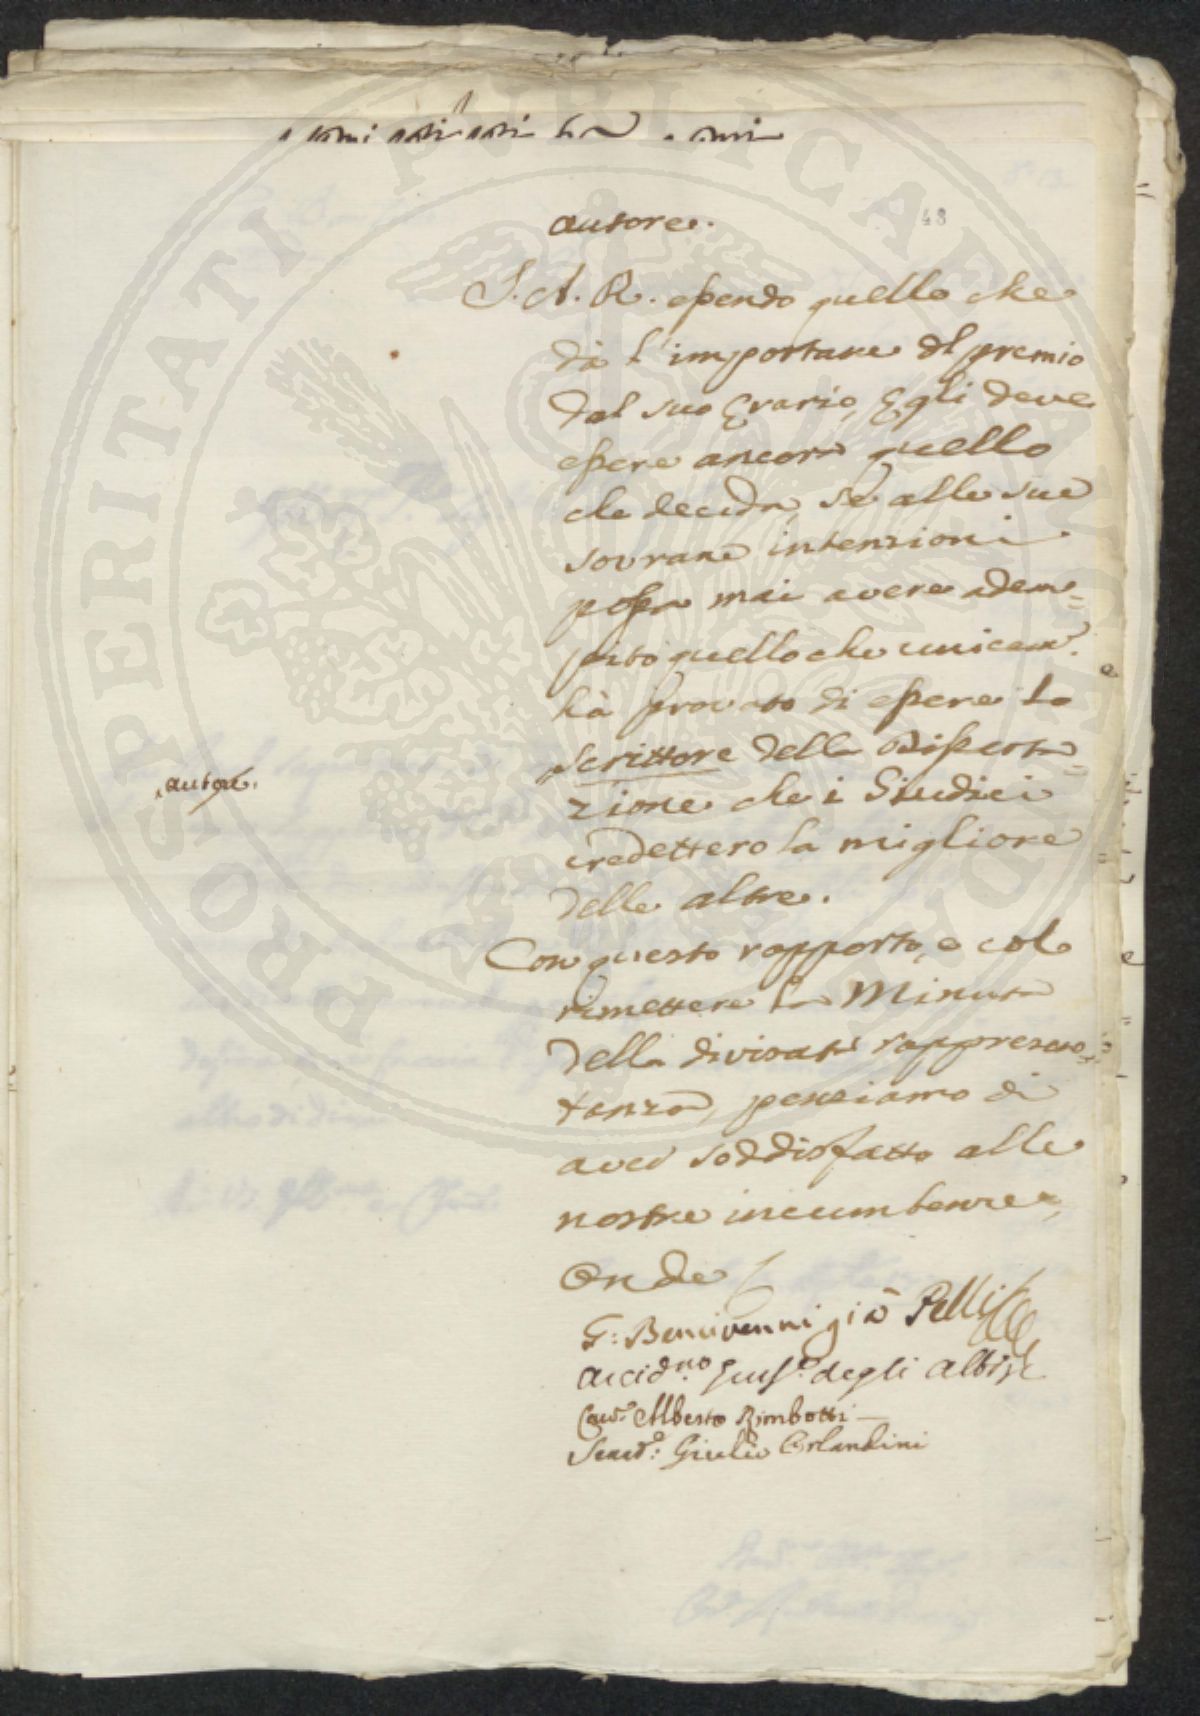 48
autore.
S. A. R. essendo quello che
dà l'importare del premio
dal suo Erario, Egli deve
essere ancora quello
che decida, se alle sue
sovrane intenzioni
possa mai avere adem=
pito quello che unicam.e
hà provato di essere lo
scrittore della Disserta=
zione che i Giudici
credettero la migliore
delle altre.
autore.
Con questo rapporto, e col
rimettere la Minuta
della divisata rappresen=
tanza, pensiamo di
aver soddisfatto alle
nostre incumbenze,
Onde
G: Bencivenni già Pelli
degli Albizi
Cav.e Alberto Rimbotti
Giulio Orlandini
PROSPERITATI PUBLICAE